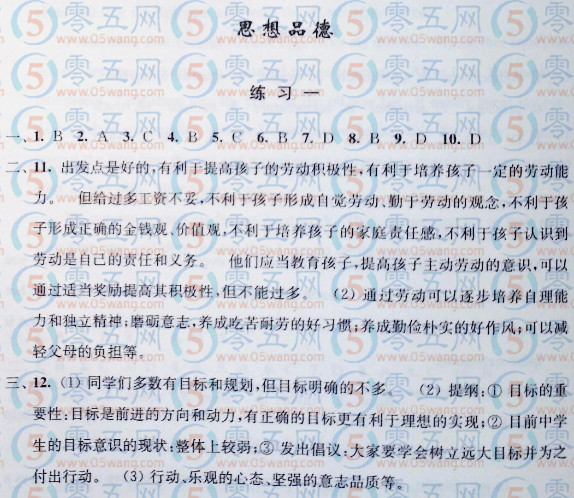 思想品德
练习一
一、1. B 2. A 3. C 4. B 5. C 6. B 7. D 8. B 9. D 10. D
二、11. 出发点是好的,有利于提高孩子的劳动积极性,有利于培养孩子一定的劳动能
力。 但给过多工资不妥,不利于孩子形成自觉劳动、勤于劳动的观念,不利于孩
子形成正确的金钱观、价值观,不利于培养孩子的家庭责任感,不利于孩子认识到
劳动是自己的责任和义务。 他们应当教育孩子,提高孩子主动劳动的意识,可以
通过适当奖励提高其积极性,但不能过多。 (2) 通过劳动可以逐步培养自理能
力和独立精神;磨砺意志,养成吃苦耐劳的好习惯;养成勤俭朴实的好作风;可以减
轻父母的负担等。
三、12. (1) 同学们多数有目标和规划,但目标明确的不多。 (2) 提纲:① 目标的重
要性:目标是前进的方向和动力,有正确的目标更有利于理想的实现;② 目前中学
生的目标意识的现状:整体上较弱;③ 发出倡议:大家要学会树立远大目标并为之
付出行动。 (3) 行动、乐观的心态、坚强的意志品质等。
零五网
www.05wang.com